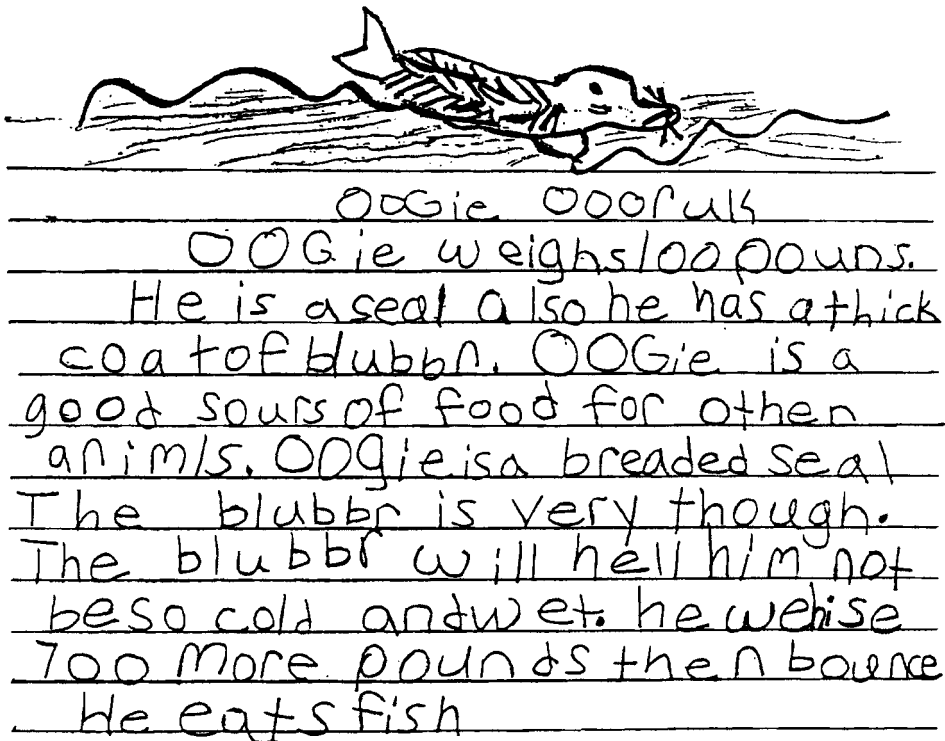 OOGie OOOruk
OOGie weighs 100 pouns.
He is a seal also he has a thick
coat of blubbr. OOGie is a
good sours of food for othen
animls. OOgie is a breaded seal
The blubbr is very though.
The blubbr will hell him not
be so cold and wet. he wehise
700 more pounds then bounce
He eats fish